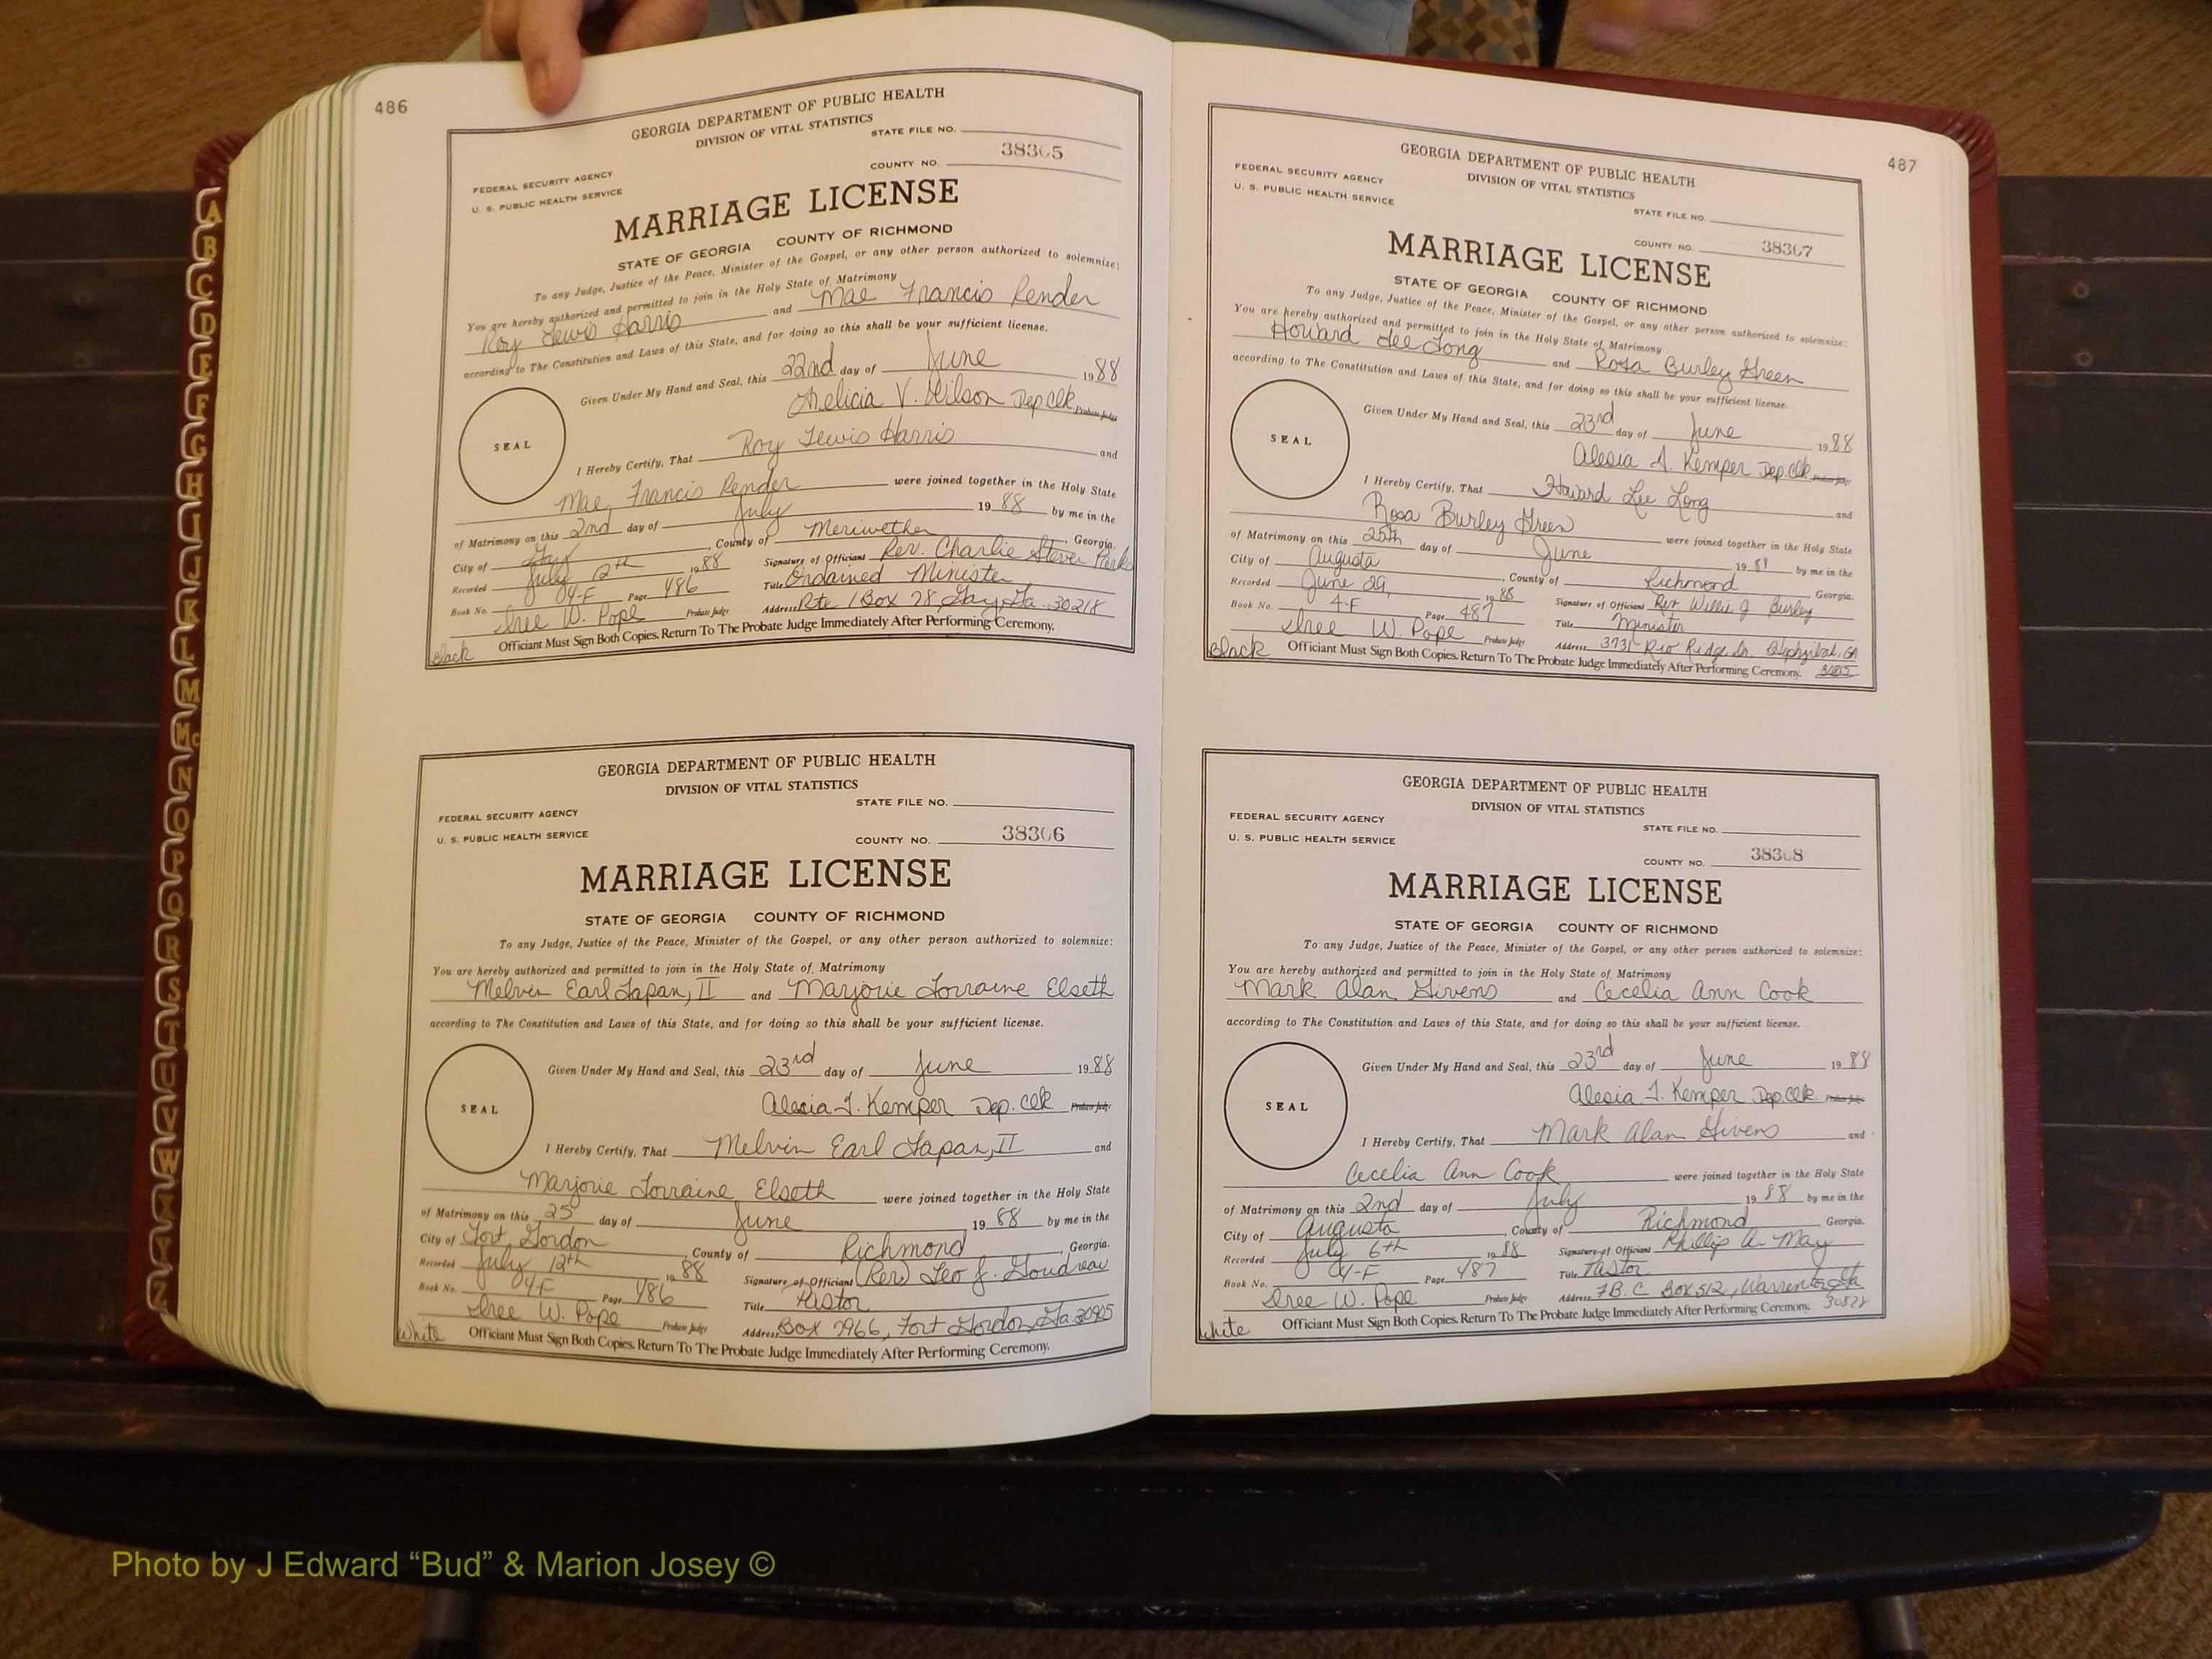 486
GEORGIA DEPARTMENT OF PUBLIC HEALTH
DIVISION OF VITAL STATISTICS
STATE FILE NO.
FEDERAL SECURITY AGENCY
U. S. PUBLIC HEALTH SERVICE
COUNTY NO. 38305
MARRIAGE LICENSE
STATE OF GEORGIA COUNTY OF RICHMOND
To any Judge, Justice of the Peace, Minister of the Gospel, or any other person authorized to solemnize:
You are hereby authorized and permitted to join in the Holy State of Matrimony
Roy Lewis Harris and Mae Francis Render
according to The Constitution and Laws of this State, and for doing so this shall be your sufficient license.
Given Under My Hand and Seal, this 22nd day of June 1988
V. Wilson Dep Clk Probate Judge
SEAL
I Hereby Certify, That Roy Lewis Harris and
Mae Francis Render were joined together in the Holy State
of Matrimony on this 2nd day of July 19 88 by me in the
City of Gay, County of Meriwether, Georgia.
Recorded July 12th 1988 Signature of Officiant Rev. Charlie Steven Parks
Book No. 4-F Page 486 Title Ordained Minister
W. Pope Probate Judge Address Rte 1 Box 78, Gay, Ga. 30218
Officiant Must Sign Both Copies. Return To The Probate Judge Immediately After Performing Ceremony.
Black
GEORGIA DEPARTMENT OF PUBLIC HEALTH
DIVISION OF VITAL STATISTICS
STATE FILE NO.
FEDERAL SECURITY AGENCY
U. S. PUBLIC HEALTH SERVICE
COUNTY NO. 38306
MARRIAGE LICENSE
STATE OF GEORGIA COUNTY OF RICHMOND
To any Judge, Justice of the Peace, Minister of the Gospel, or any other person authorized to solemnize:
You are hereby authorized and permitted to join in the Holy State of Matrimony
Melvin Earl Tapan, II and Marjorie Lorraine Elseth
according to The Constitution and Laws of this State, and for doing so this shall be your sufficient license.
Given Under My Hand and Seal, this 23rd day of June 1988
Alesia J. Kemper Dep. Clk Probate Judge
SEAL
I Hereby Certify, That Melvin Earl Tapan, II and
Marjorie Lorraine Elseth were joined together in the Holy State
of Matrimony on this 25 day of June 19 88 by me in the
City of Fort Gordon, County of Richmond, Georgia.
Recorded July 12th 1988 Signature of Officiant (Rev) Leo J. Goudreau
Book No. 4-F Page 486 Title Pastor
W. Pope Probate Judge Address Box 7966, Fort Gordon, Ga. 30905
Officiant Must Sign Both Copies. Return To The Probate Judge Immediately After Performing Ceremony.
White
487
GEORGIA DEPARTMENT OF PUBLIC HEALTH
DIVISION OF VITAL STATISTICS
FEDERAL SECURITY AGENCY
U. S. PUBLIC HEALTH SERVICE
STATE FILE NO.
COUNTY NO. 38307
MARRIAGE LICENSE
STATE OF GEORGIA COUNTY OF RICHMOND
To any Judge, Justice of the Peace, Minister of the Gospel, or any other person authorized to solemnize:
You are hereby authorized and permitted to join in the Holy State of Matrimony
Howard Lee Long and Rosa Burley Green
according to The Constitution and Laws of this State, and for doing so this shall be your sufficient license.
Given Under My Hand and Seal, this 23rd day of June 1988
Alesia J. Kemper Dep. Clk Probate Judge
SEAL
I Hereby Certify, That Howard Lee Long and
Rosa Burley Green were joined together in the Holy State
of Matrimony on this 25th day of June 19 by me in the
City of Augusta, County of Richmond Georgia.
Recorded June 29, 1988 Signature of Officiant Rev Willie J. Burley
Book No. 4-F Page 487 Title Minister
W. Pope Probate Judge Address Rio Ridge Dr. Hephzibah, GA
30815
Officiant Must Sign Both Copies. Return To The Probate Judge Immediately After Performing Ceremony.
Black
GEORGIA DEPARTMENT OF PUBLIC HEALTH
DIVISION OF VITAL STATISTICS
FEDERAL SECURITY AGENCY
STATE FILE NO.
U. S. PUBLIC HEALTH SERVICE
COUNTY NO. 38308
MARRIAGE LICENSE
STATE OF GEORGIA COUNTY OF RICHMOND
To any Judge, Justice of the Peace, Minister of the Gospel, or any other person authorized to solemnize:
You are hereby authorized and permitted to join in the Holy State of Matrimony
Mark Alan Givens and Cecelia Ann Cook
according to The Constitution and Laws of this State, and for doing so this shall be your sufficient license.
Given Under My Hand and Seal, this 23rd day of June 1988
Alesia J. Kemper Dep. Clk. Probate Judge
SEAL
I Hereby Certify, That Mark Alan Givens and
Cecelia Ann Cook were joined together in the Holy State
of Matrimony on this 2nd day of July 19 88 by me in the
City of Augusta, County of Richmond, Georgia.
Recorded July 6th 1988 Signature of Officiant Phillip A. May
Book No. 4-F Page 487 Title Pastor
W. Pope Probate Judge Address F.B.C. Box 512, Warrenton, Ga
30828
Officiant Must Sign Both Copies. Return To The Probate Judge Immediately After Performing Ceremony.
White
A
B
C
D
E
F
G
H
I
J
K
L
M
Mc
N
O
P
Q
R
S
T
U
V
W
X
Y
Z
Photo by J Edward “Bud” & Marion Josey ©